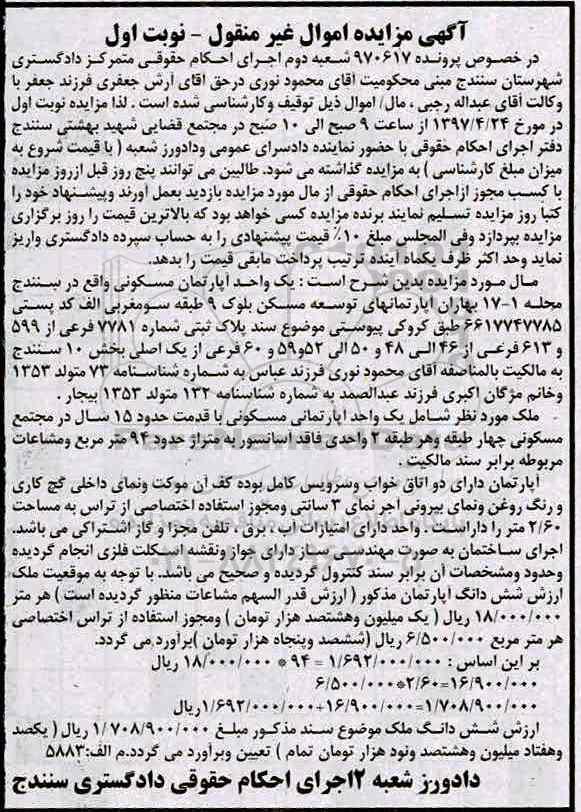 آگهی مزایده اموال غیر منقول - نوبت اول
در خصوص پرونده ۹۷۰۶۱۷ شعبه دوم اجرای احکام حقوقی متمرکز دادگستری
شهرستان سنندج مبنی محکومیت آقای محمود نوری درحق اقای آرش جعفری فرزند جعفر با
وکالت آقای عبداله رجبی ، مال/ اموال ذیل توقیف وکارشناسی شده است . لذا مزایده نوبت اول
در مورخ ۱۳۹۷/۴/۲۴ از ساعت ۹ صبح الی ۱۰ صبح در مجتمع قضایی شهید بهشتی سنندج
دفتر اجرای احکام حقوقی با حضور نماینده دادسرای عمومی ودادورز شعبه ( با قیمت شروع به
میزان مبلغ کارشناسی ) به مزایده گذاشته می شود. طالبین می توانند پنج روز قبل ازروز مزایده
با کسب مجوز ازاجرای احکام حقوقی از مال مورد مزایده بازدید بعمل آورند وپیشنهاد خود را
کتبا روز مزایده تسلیم نمایند برنده مزایده کسی خواهد بود که بالاترین قیمت را روز برگزاری
مزایده بپردازد وفی المجلس مبلغ ۱۰٪ قیمت پیشنهادی را به حساب سپرده دادگستری واریز
نماید وحد اکثر ظرف یکماه آینده ترتیب پرداخت مابقی قیمت را بدهد.
مال مورد مزایده بدین شرح است : یک واحد آپارتمان مسکونی واقع در سنندج
محله ۱-۱۷ بهاران آپارتمانهای توسعه مسکن بلوک ۹ طبقه سومغربی الف کد پستی
۶۶۱۷۷۴۷۷۸۵ طبق کروکی پیوستی موضوع سند پلاک ثبتی شماره ۷۷۸۱ فرعی از ۵۹۹
و ۶۱۳ فرعی از ۴۶ الی ۴۸ و ۵۰ الی ۵۲و۵۹ و ۶۰ فرعی از یک اصلی بخش ۱۰ سنندج
به مالکیت بالمناصفه آقای محمود نوری فرزند عباس به شماره شناسنامه ۷۳ متولد ۱۳۵۳
وخانم مژگان اکبری فرزند عبدالصمد به شماره شناسنامه ۱۳۲ متولد ۱۳۵۳ بیجار .
ملک مورد نظر شامل یک واحد آپارتمانی مسکونی با قدمت حدود ۱۵ سال در مجتمع
مسکونی چهار طبقه وهر طبقه ۲ واحدی فاقد آسانسور به متراژ حدود ۹۴ متر مربع ومشاعات
مربوطه برابر سند مالکیت .
آپارتمان دارای دو اتاق خواب وسرویس کامل بوده کف آن موکت ونمای داخلی گچ کاری
و رنگ روغن ونمای بیرونی اجر نمای ۳ سانتی ومجوز استفاده اختصاصی از تراس به مساحت
۲/۶۰ متر را داراست . واحد دارای امتیازات آب ، برق ، تلفن مجزا و گاز اشتراکی می باشد.
اجرای ساختمان به صورت مهندسی ساز دارای جواز ونقشه اسکلت فلزی انجام گردیده
وحدود ومشخصات آن برابر سند کنترول گردیده و صحیح می باشد. با توجه به موقعیت ملک
ارزش شش دانگ آپارتمان مذکور ( ارزش قدر السهم مشاعات منظور گردیده است ) هر متر
۱۸/۰۰۰/۰۰۰ ریال ( یک میلیون وهشتصد هزار تومان ) ومجوز استفاده از تراس اختصاصی
هر متر مربع ۶/۵۰۰/۰۰۰ ریال (ششصد وپنجاه هزار تومان )برآورد می گردد.
بر این اساس : ۱/۶۹۲/۰۰۰/۰۰۰ = ۹۴ * ۱۸/۰۰۰/۰۰۰ ریال
۱۶/۹۰۰/۰۰۰=۲/۶۰*۶/۵۰۰/۰۰۰
۱/۷۰۸/۹۰۰/۰۰۰=۱۶/۹۰۰/۰۰۰+۱/۶۹۲/۰۰۰/۰۰۰ریال
ارزش شش دانگ ملک موضوع سند مذکور مبلغ ۱/۷۰۸/۹۰۰/۰۰۰ ریال ( یکصد
وهفتاد میلیون وهشتصد ونود هزار تومان تمام ) تعیین وبرآورد می گردد.م الف:۵۸۸۳
دادورز شعبه ۱۲اجرای احکام حقوقی دادگستری سنندج